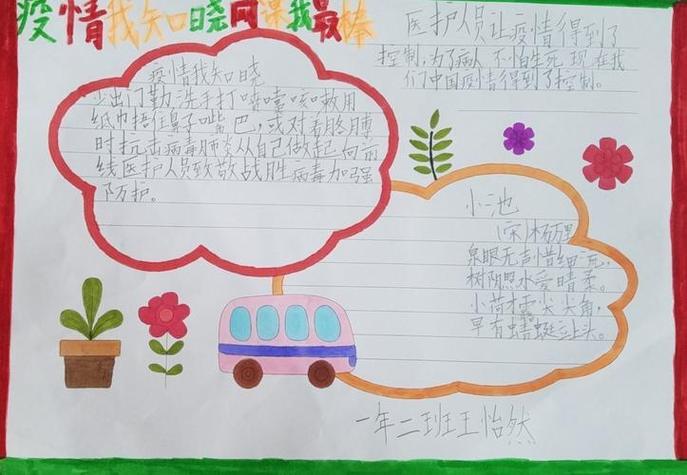 疫情我知晓网课我最棒
医护人员让疫情得到了
控制,为了病人不怕生死,现在我
们中国疫情得到了控制。
疫情我知晓
少出门勤洗手打喷嚏咳嗽用
纸巾捂住鼻子嘴巴,或对着胳膊
时抗击病毒肺炎从自己做起向前
线医护人员致敬战胜病毒加强
防护。
小池
(宋)杨万里
泉眼无声惜细流,
树阴照水爱晴柔。
小荷才露尖尖角,
早有蜻蜓立上头。
一年二班王怡然